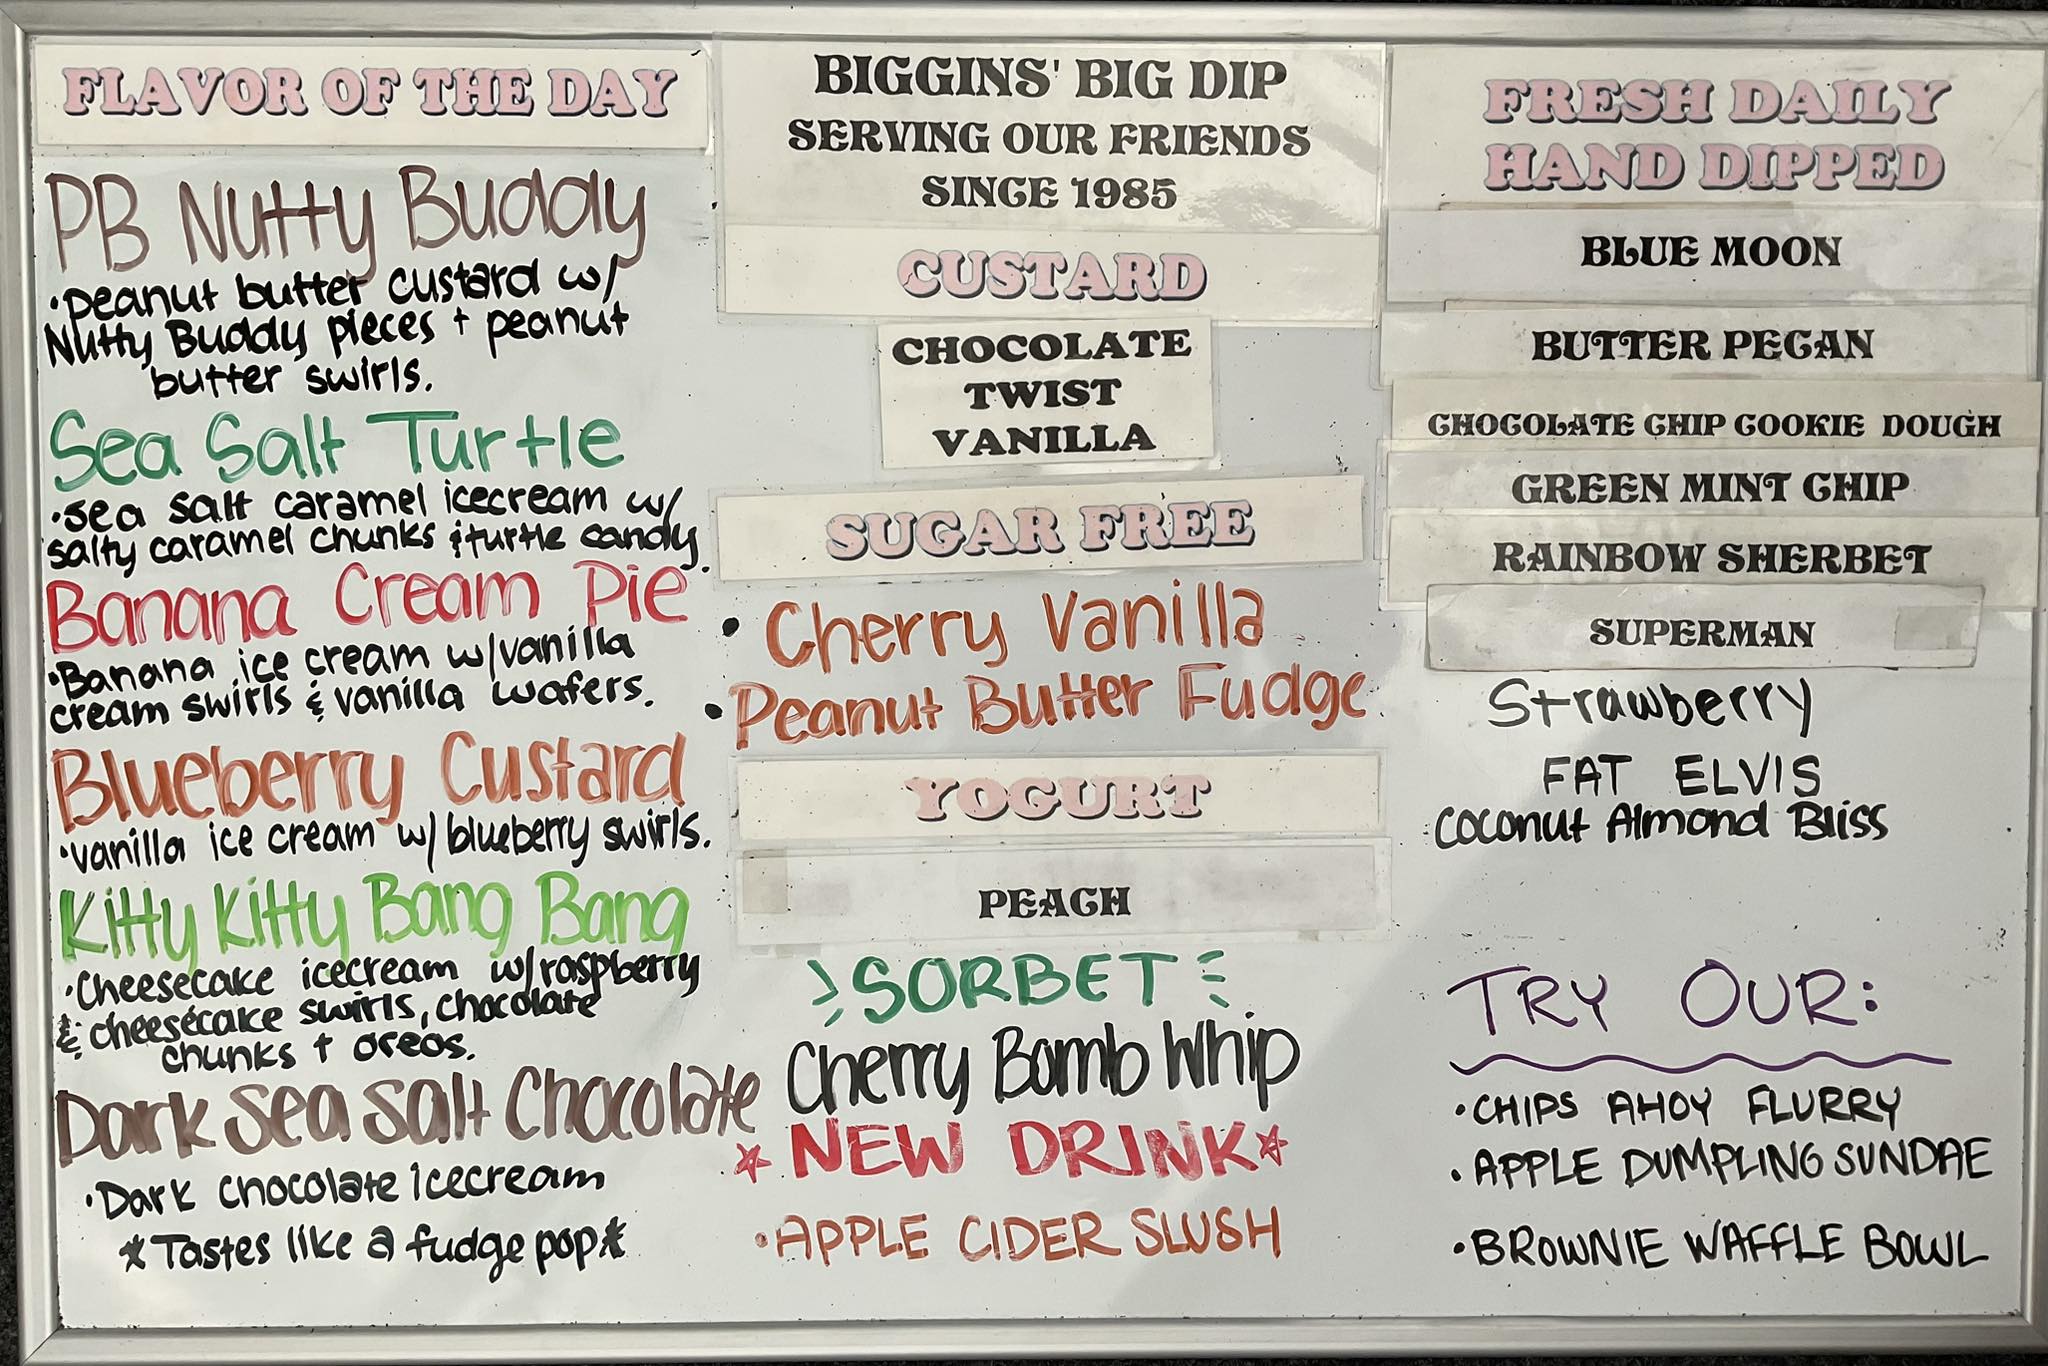 FLAVOR OF THE DAY
PB Nutty Buddy
•peanut butter custard w/
Nutty Buddy pieces + peanut
butter swirls.
Sea Salt Turtle
•sea salt caramel icecream w/
salty caramel chunks & turtle candy.
Banana Cream Pie
•Banana ice cream w/vanilla
cream swirls & vanilla wafers.
Blueberry Custard
•vanilla ice cream w/ blueberry swirls.
Kitty Kitty Bang Bang
•Cheesecake icecream w/raspberry
& cheesecake swirls, chocolate
chunks + oreos.
Dark Sea Salt Chocolate
•Dark chocolate icecream
*Tastes like a fudge pop*
BIGGINS' BIG DIP
SERVING OUR FRIENDS
SINCE 1985
CUSTARD
CHOCOLATE
TWIST
VANILLA
SUGAR FREE
• Cherry Vanilla
• Peanut Butter Fudge
YOGURT
PEACH
SORBET
Cherry Bomb Whip
*NEW DRINK*
•APPLE CIDER SLUSH
FRESH DAILY
HAND DIPPED
BLUE MOON
BUTTER PECAN
CHOCOLATE CHIP COOKIE DOUGH
GREEN MINT CHIP
RAINBOW SHERBET
SUPERMAN
Strawberry
FAT ELVIS
Coconut Almond Bliss
TRY OUR:
•CHIPS AHOY FLURRY
•APPLE DUMPLING SUNDAE
•BROWNIE WAFFLE BOWL